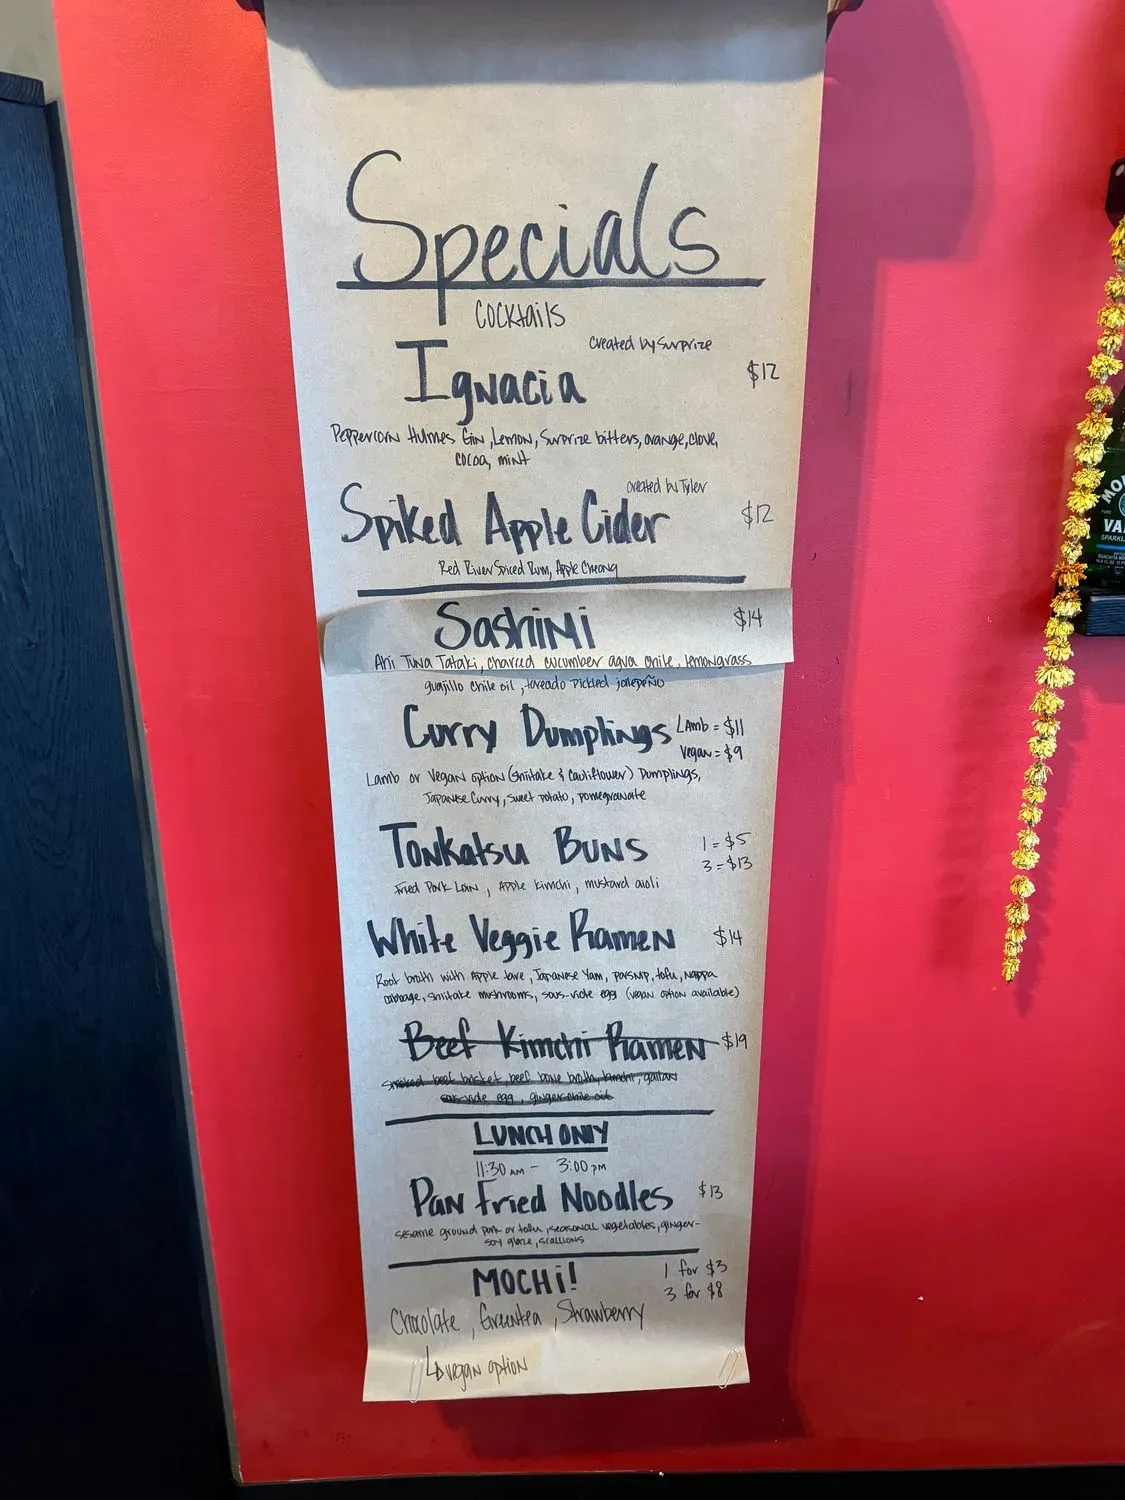 Specials
Cocktails
created by Surprize
Ignacia $12
Peppercorn Hulmes Gin, Lemon, Surprize bitters, orange, clove,
cocoa, mint
created by Tyler
Spiked Apple Cider $12
Red River Spiced Rum, Apple Cheong
Sashimi $14
Ahi Tuna Tataki, charred cucumber agua chile, lemongrass
guajillo chile oil, toreado pickled jalepeño
Curry Dumplings Lamb = $11
Vegan = $9
Lamb or Vegan option (shiitake & cauliflower) Dumplings,
Japanese Curry, sweet potato, pomegranate
Tonkatsu Buns 1 = $5
3 = $13
Fried Pork Loin, Apple kimchi, mustard aioli
White Veggie Ramen $14
Root broth with Apple tare, Japanese Yam, parsnip, tofu, nappa
cabbage, shiitake mushrooms, sous-vide egg (vegan option available)
Beef Kimchi Ramen $19
smoked beef brisket, beef bone broth, kimchi, gailan
sous-vide egg, ginger-chile oil
LUNCH ONLY
11:30 AM - 3:00 pm
Pan Fried Noodles $13
sesame ground pork or tofu, seasonal vegetables, ginger-
soy glaze, scallions
MOCHI! 1 for $3
3 for $8
Chocolate, Greentea, Strawberry
vegan option